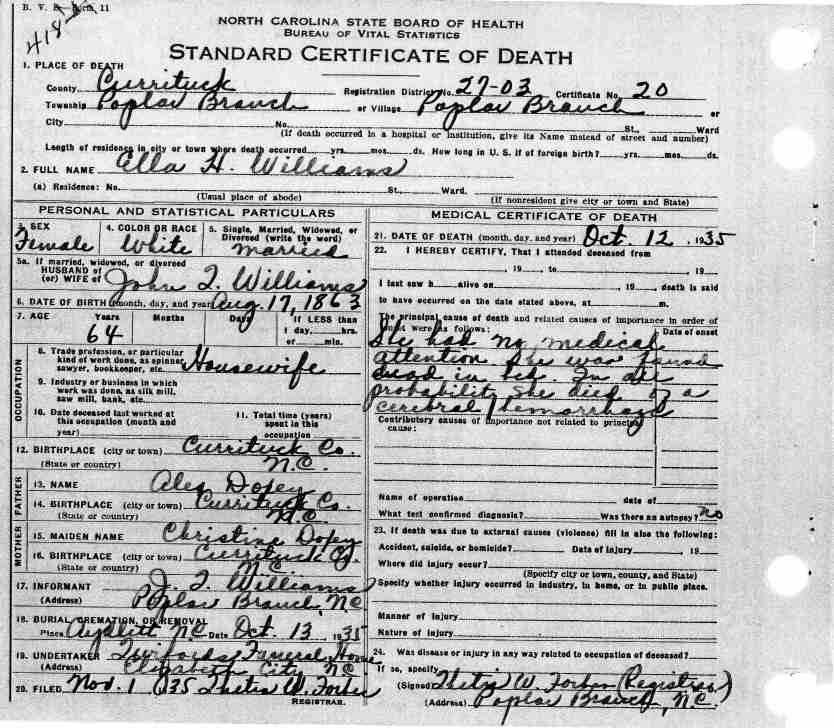 B. V. S. Form 11
418
NORTH CAROLINA STATE BOARD OF HEALTH
BUREAU OF VITAL STATISTICS
STANDARD CERTIFICATE OF DEATH
1. PLACE OF DEATH
County Currituck Registration District No. 27-03 Certificate No. 20
Township Poplar Branch or Village Poplar Branch or
City No. St., Ward
(If death occurred in a hospital or institution, give its Name instead of street and number)
Length of residence in city or town where death occurred yrs. mos. ds. How long in U. S. if of foreign birth? yrs. mos. ds.
2. FULL NAME Ella H. Williams
(a) Residence: No. St., Ward.
(Usual place of abode) (If nonresident give city or town and State)
PERSONAL AND STATISTICAL PARTICULARS
3. SEX 4. COLOR OR RACE 5. Single, Married, Widowed, or
Divorced (write the word)
Female White Married
5a. If married, widowed, or divorced
HUSBAND of
(or) WIFE of John T. Williams
6. DATE OF BIRTH (month, day, and year) Aug. 17, 1863
7. AGE Years Months Days If LESS than
1 day, hrs.
or min.
64
OCCUPATION
8. Trade profession, or particular
kind of work done, as spinner,
sawyer, bookkeeper, etc. Housewife
9. Industry or business in which
work was done, as silk mill,
saw mill, bank, etc.
10. Date deceased last worked at
this occupation (month and
year)
11. Total time (years)
spent in this
occupation
12. BIRTHPLACE (city or town) Currituck Co.
(State or country) N.C.
FATHER
13. NAME Alex Doxey
14. BIRTHPLACE (city or town) Currituck Co.
(State or country) N.C.
MOTHER
15. MAIDEN NAME Christine Doxey
16. BIRTHPLACE (city or town) Currituck Co.
(State or country) N.C.
17. INFORMANT J. T. Williams
(Address) Poplar Branch, N.C.
18. BURIAL, CREMATION, OR REMOVAL
Place Aydlett, N.C. Date Oct. 13, 1935
19. UNDERTAKER Funeral Home
(Address) Elizabeth City, N.C.
20. FILED Nov. 1 1935 Thetis W. Forbes
REGISTRAR.
MEDICAL CERTIFICATE OF DEATH
21. DATE OF DEATH (month, day, and year) Oct. 12, 1935
22. I HEREBY CERTIFY, That I attended deceased from
, 19 to , 19
I last saw h alive on , 19 death is said
to have occurred on the date stated above, at m.
The principal cause of death and related causes of importance in order of
onset were as follows: Date of onset
She had no medical
attention She was found
dead in bed. In all
probability she died of a
cerebral hemorrhage
Contributory causes of importance not related to principal
cause:
Name of operation date of
What test confirmed diagnosis? Was there an autopsy? no
23. If death was due to external causes (violence) fill in also the following:
Accident, suicide, or homicide? Date of injury , 19
Where did injury occur?
(Specify city or town, county, and State)
Specify whether injury occurred in industry, in home, or in public place.
Manner of injury
Nature of injury
24. Was disease or injury in any way related to occupation of deceased?
If so, specify
(Signed) Thetis W. Forbes (Registrar)
(Address) Poplar Branch, N.C.